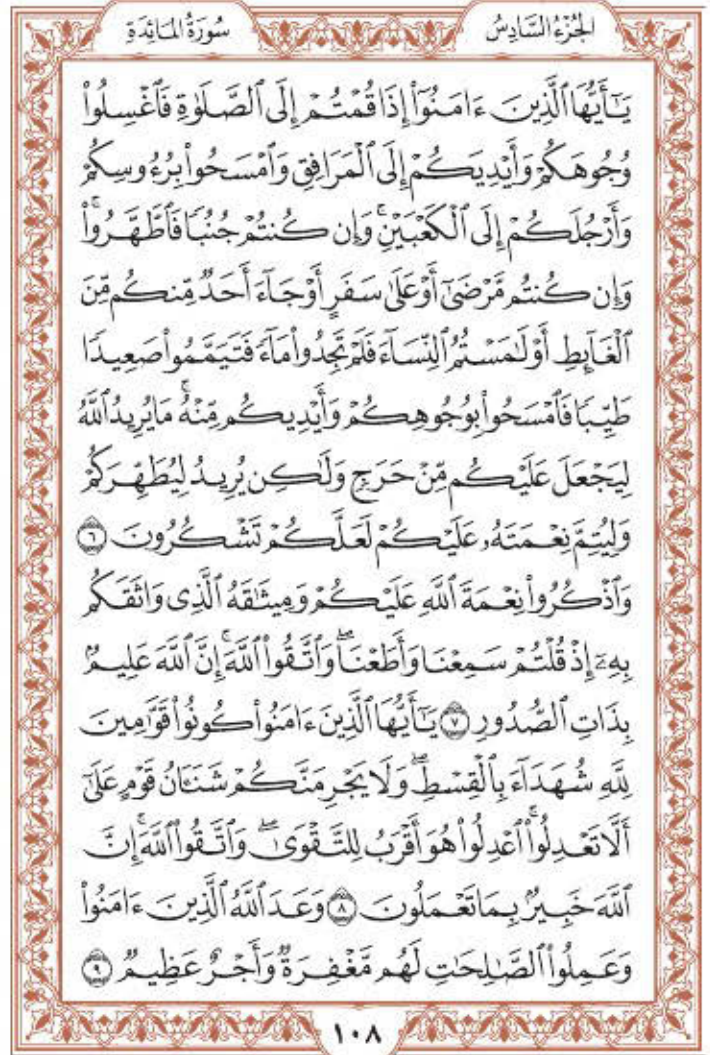 الجُزْءُ السَّادِسُ سُورَةُ المَائِدَةِ
يَـٰٓأَيُّهَا ٱلَّذِينَ ءَامَنُوٓاْ إِذَا قُمۡتُمۡ إِلَى ٱلصَّلَوٰةِ فَٱغۡسِلُواْ
وُجُوهَكُمۡ وَأَيۡدِيَكُمۡ إِلَى ٱلۡمَرَافِقِ وَٱمۡسَحُواْ بِرُءُوسِكُمۡ
وَأَرۡجُلَكُمۡ إِلَى ٱلۡكَعۡبَيۡنِۚ وَإِن كُنتُمۡ جُنُبٗا فَٱطَّهَّرُواْۚ
وَإِن كُنتُم مَّرۡضَىٰٓ أَوۡ عَلَىٰ سَفَرٍ أَوۡ جَآءَ أَحَدٞ مِّنكُم مِّنَ
ٱلۡغَآئِطِ أَوۡ لَٰمَسۡتُمُ ٱلنِّسَآءَ فَلَمۡ تَجِدُواْ مَآءٗ فَتَيَمَّمُواْ صَعِيدٗا
طَيِّبٗا فَٱمۡسَحُواْ بِوُجُوهِكُمۡ وَأَيۡدِيكُم مِّنۡهُۚ مَا يُرِيدُ ٱللَّهُ
لِيَجۡعَلَ عَلَيۡكُم مِّنۡ حَرَجٖ وَلَٰكِن يُرِيدُ لِيُطَهِّرَكُمۡ
وَلِيُتِمَّ نِعۡمَتَهُۥ عَلَيۡكُمۡ لَعَلَّكُمۡ تَشۡكُرُونَ ٦
وَٱذۡكُرُواْ نِعۡمَةَ ٱللَّهِ عَلَيۡكُمۡ وَمِيثَٰقَهُ ٱلَّذِي وَاثَقَكُم
بِهِۦٓ إِذۡ قُلۡتُمۡ سَمِعۡنَا وَأَطَعۡنَاۖ وَٱتَّقُواْ ٱللَّهَۚ إِنَّ ٱللَّهَ عَلِيمُۢ
بِذَاتِ ٱلصُّدُورِ ٧ يَـٰٓأَيُّهَا ٱلَّذِينَ ءَامَنُواْ كُونُواْ قَوَّٰمِينَ
لِلَّهِ شُهَدَآءَ بِٱلۡقِسۡطِۖ وَلَا يَجۡرِمَنَّكُمۡ شَنَـَٔانُ قَوۡمٍ عَلَىٰٓ
أَلَّا تَعۡدِلُواْۚ ٱعۡدِلُواْ هُوَ أَقۡرَبُ لِلتَّقۡوَىٰۖ وَٱتَّقُواْ ٱللَّهَۚ إِنَّ
ٱللَّهَ خَبِيرُۢ بِمَا تَعۡمَلُونَ ٨ وَعَدَ ٱللَّهُ ٱلَّذِينَ ءَامَنُواْ
وَعَمِلُواْ ٱلصَّٰلِحَٰتِ لَهُم مَّغۡفِرَةٞ وَأَجۡرٌ عَظِيمٞ ٩
١٠٨